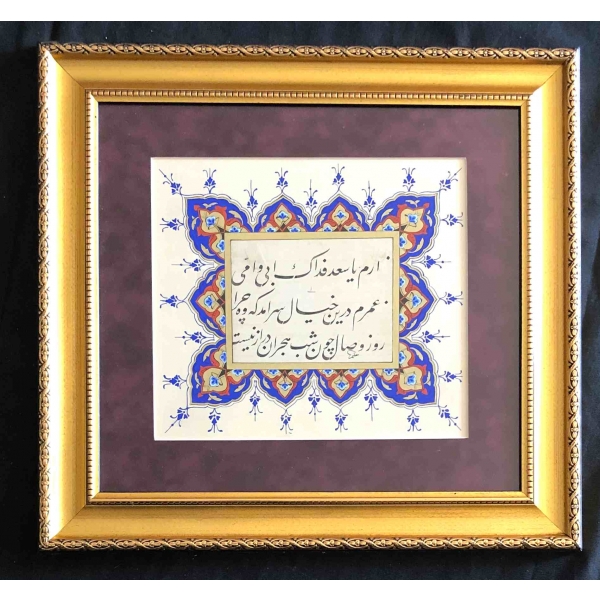 ارم یا سعد فداک ابی و امی
عمرم درین خیال سرامد که وه چرا
روز وصال چون شب هجران دراز نیست